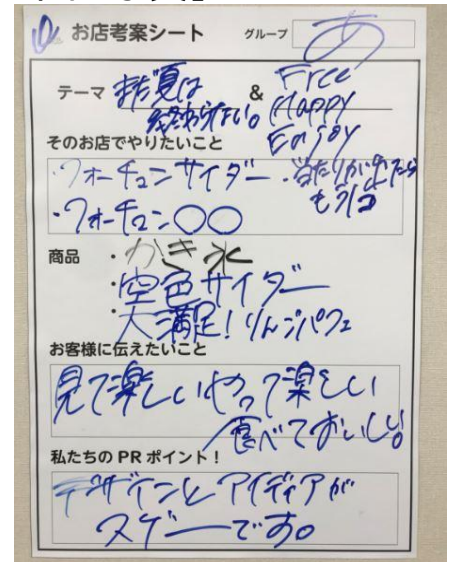 お店考案シート グループ あ
テーマ まだ夏は & Free
終わらない。 Happy
Enjoy
そのお店でやりたいこと
・フォーチュンサイダー ・当たりが出たら
・フォーチュン〇〇 もう1コ
商品 ・かき氷
・空色サイダー
・大満足!りんごパフェ
お客様に伝えたいこと
見て楽しい やって楽しい
食べておいしい。
私たちの PR ポイント!
デザインと アイディアが
スゲーです。